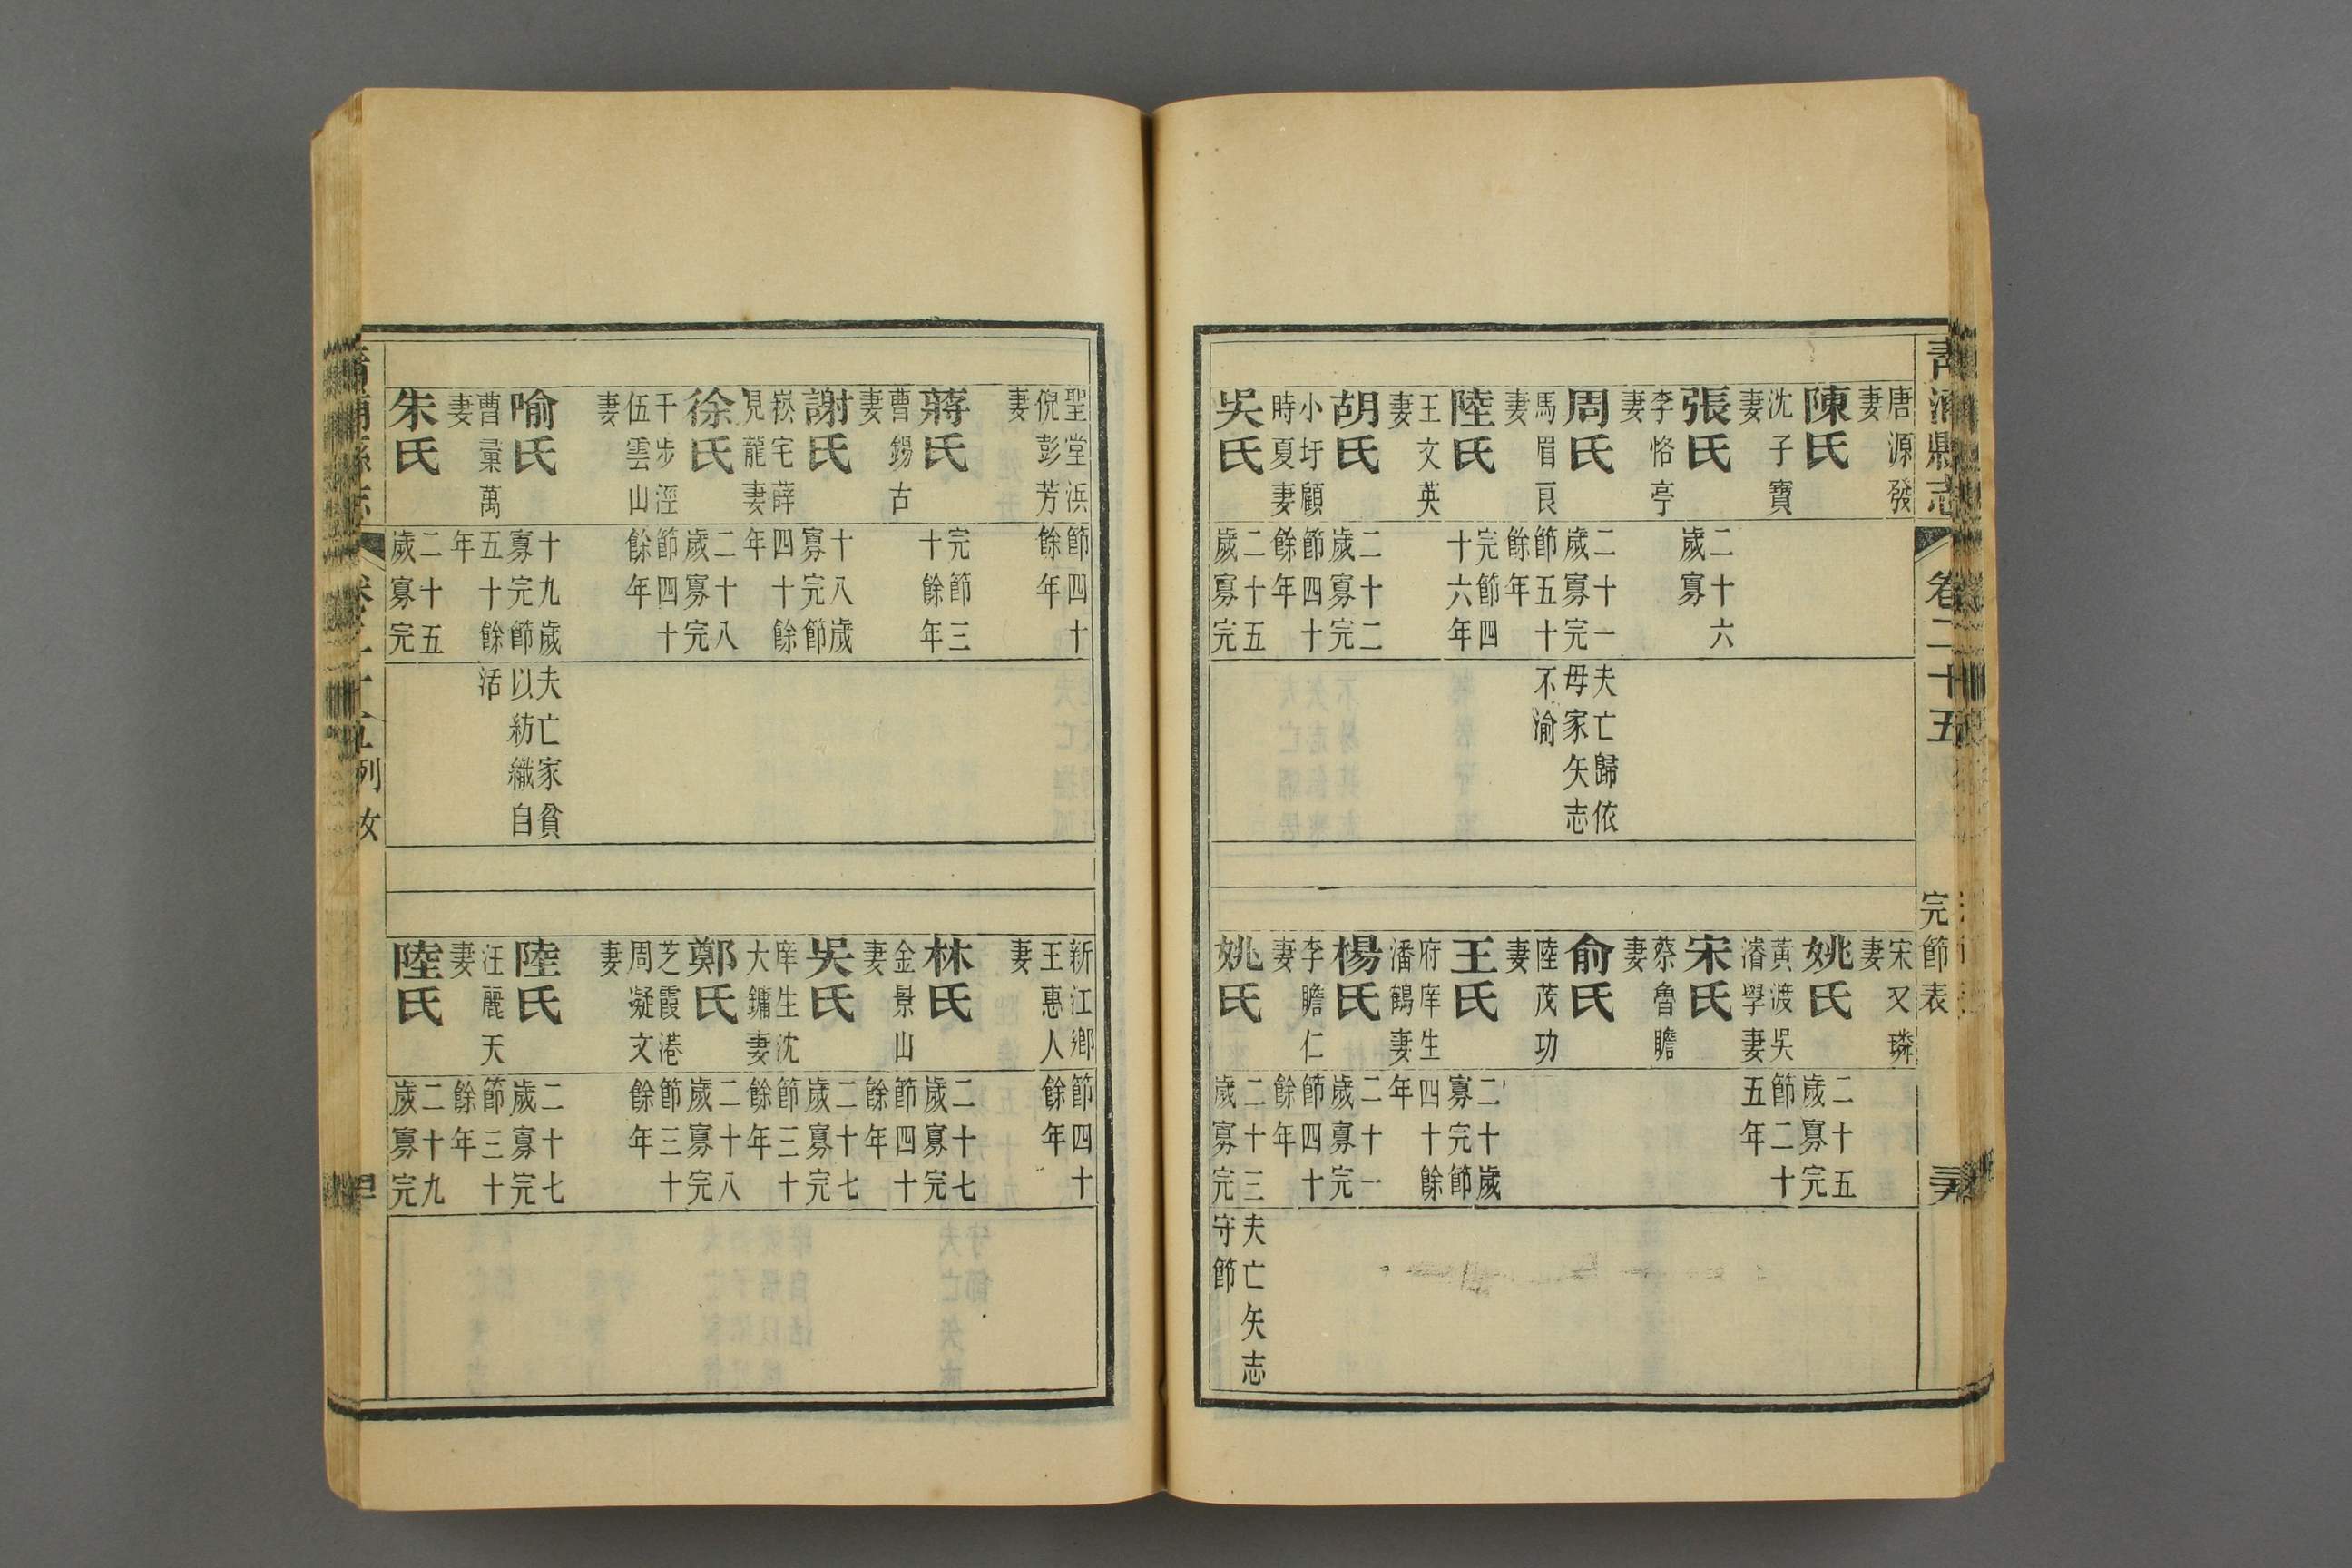 青浦縣志
卷二十五
完節表
唐源發
妻
陳氏
沈子寶
妻
張氏
二十六
歲寡
李恪亭
妻
周氏
二十一
歲寡完
節五十
餘年
夫亡歸依
母家矢志
不渝
馬眉良
妻
陸氏
完節四
十六年
王文英
妻
胡氏
二十二
歲寡完
節四十
餘年
小圩顧
時夏妻
吳氏
二十五
歲寡完
宋又璘
妻
姚氏
二十五
歲寡完
節二十
五年
黃渡吳
濬學妻
宋氏
蔡魯瞻
妻
俞氏
陸茂功
妻
王氏
二十歲
寡完節
四十餘
年
府庠生
潘鶴妻
楊氏
二十一
歲寡完
節四十
餘年
李瞻仁
妻
姚氏
二十三
歲寡完
夫亡矢志
守節
聖堂浜
倪彭芳
妻
節四十
餘年
蔣氏
完節三
十餘年
曹錫古
妻
謝氏
十八歲
寡完節
四十餘
年
崧宅薛
見龍妻
徐氏
二十八
歲寡完
節四十
餘年
干步涇
伍雲山
妻
喻氏
十九歲
寡完節
五十餘
年
夫亡家貧
以紡織自
活
曹彙萬
妻
朱氏
二十五
歲寡完
新江鄉
王惠人
妻
節四十
餘年
林氏
二十七
歲寡完
節四十
餘年
金景山
妻
吳氏
二十七
歲寡完
節三十
餘年
庠生沈
大鏞妻
鄭氏
二十八
歲寡完
節三十
餘年
芝霞港
周凝文
妻
陸氏
二十七
歲寡完
節三十
餘年
汪麗天
妻
陸氏
二十九
歲寡完
列女